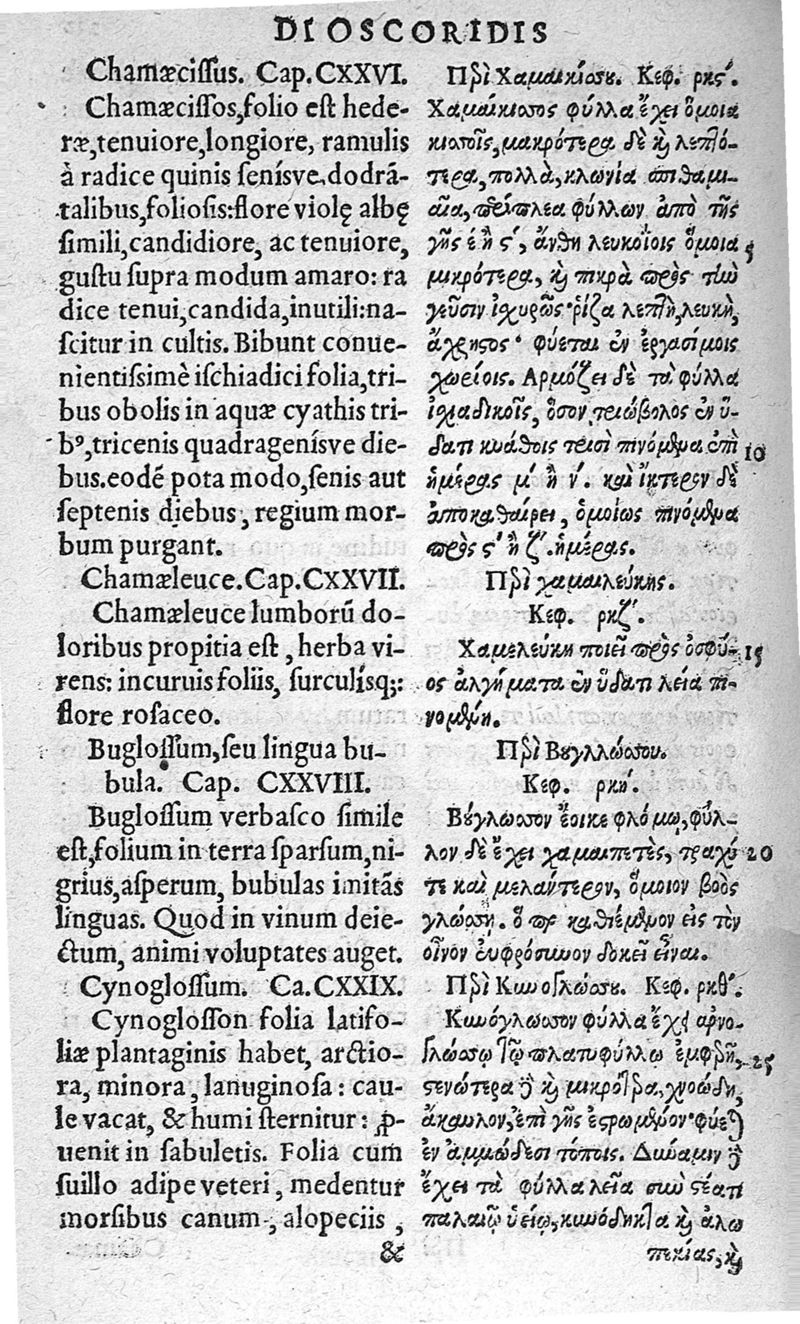 DIOSCORIDIS
Chamæcissus. Cap. CXXVI.
Chamæcissos, folio est hede-
ræ, tenuiore, longiore, ramulis
à radice quinis senísve, dodrā-
talibus, foliosis: flore violę albę
simili, candidiore, ac tenuiore,
gustu supra modum amaro: ra
dice tenui, candida, inutili: na-
scitur in cultis. Bibunt conue-
nientissimè ischiadici folia, tri-
bus obolis in aquæ cyathis tri-
bꝰ, tricenis quadragenísve die-
bus. eodē pota modo, senis aut
septenis diebus, regium mor-
bum purgant.
Chamæleuce. Cap. CXXVII.
Chamæleuce lumborū do-
loribus propitia est, herba vi-
rens: incuruis foliis, surculísq;:
flore rosaceo.
Buglossum, seu lingua bu-
bula. Cap. CXXVIII.
Buglossum verbasco simile
est, folium in terra sparsum, ni-
grius, asperum, bubulas imitās
linguas. Quod in vinum deie-
ctum, animi voluptates auget.
Cynoglossum. Ca. CXXIX.
Cynoglosson folia latifo-
liæ plantaginis habet, arctio-
ra, minora, lanuginosa: cau-
le vacat, & humi sternitur: ꝓ-
uenit in sabuletis. Folia cum
suillo adipe veteri, medentur
morsibus canum, alopeciis,
&
Περὶ Χαμαικίσσου. Κεφ. ρκς΄.
Χαμαίκισσος φύλλα ἔχει ὅμοια
κισσοῖς, μακρότερα δὲ καὶ λεπτό-
τερα, πολλὰ, κλωνία σπιθαμι-
αῖα, περίπλεα φύλλων ἀπὸ τῆς
γῆς έ ἢ ς΄, ἄνθη λευκοΐοις ὅμοια 5
μικρότερα, καὶ πικρὰ πρὸς τὴν
γεῦσιν ἰσχυρῶς· ῥίζα λεπτὴ, λευκὴ,
ἄχρηστος· φύεται ἐν ἐργασίμοις
χωρίοις. Αρμόζει δὲ τὰ φύλλα
ἰσχιαδικοῖς, ὅσον τριώβολος ἐν ὕ-
δατι κυάθοις τρισὶ πινόμενα ἐπὶ 10
ἡμέρας μ΄ ἢ ν΄. καὶ ἴκτερον δὲ
ἀποκαθαίρει, ὁμοίως πινόμενα
πρὸς ς΄ ἢ ζ΄. ἡμέρας.
Περὶ χαμαιλεύκης.
Κεφ. ρκζ΄.
Χαμελεύκη ποιεῖ πρὸς ὀσφύ- 15
ος ἀλγήματα ἐν ὕδατι λεία πι-
νομένη.
Περὶ Βουγλλώσσου.
Κεφ. ρκή.
Βούγλωσσον ἔοικε φλόμῳ, φύλ-
λον δὲ ἔχει χαμαιπετὲς, τραχύ 20
τε καὶ μελάντερον, ὅμοιον βοὸς
γλώσσῃ. ὅ περ καθιέμενον εἰς τὸν
οἶνον εὐφρόσυνον δοκεῖ εἶναι.
Περὶ Κυνογλώσσου. Κεφ. ρκθ΄.
Κυνόγλωσσον φύλλα ἔχει ἀρνο-
γλώσσῳ τῷ πλατυφύλλῳ ἐμφερῆ, 25
στενώτερα δὲ καὶ μικρότερα, χνοώδη,
ἄκαυλον, ἐπὶ γῆς ἐστρωμένον· φύεται
ἐν ἀμμώδεσι τόποις. Δύναμιν δὲ
ἔχει τὰ φύλλα λεῖα σὺν στέατι
παλαιῷ ὑείῳ, κυνόδηκτα καὶ ἀλω
πεκίας, καὶ